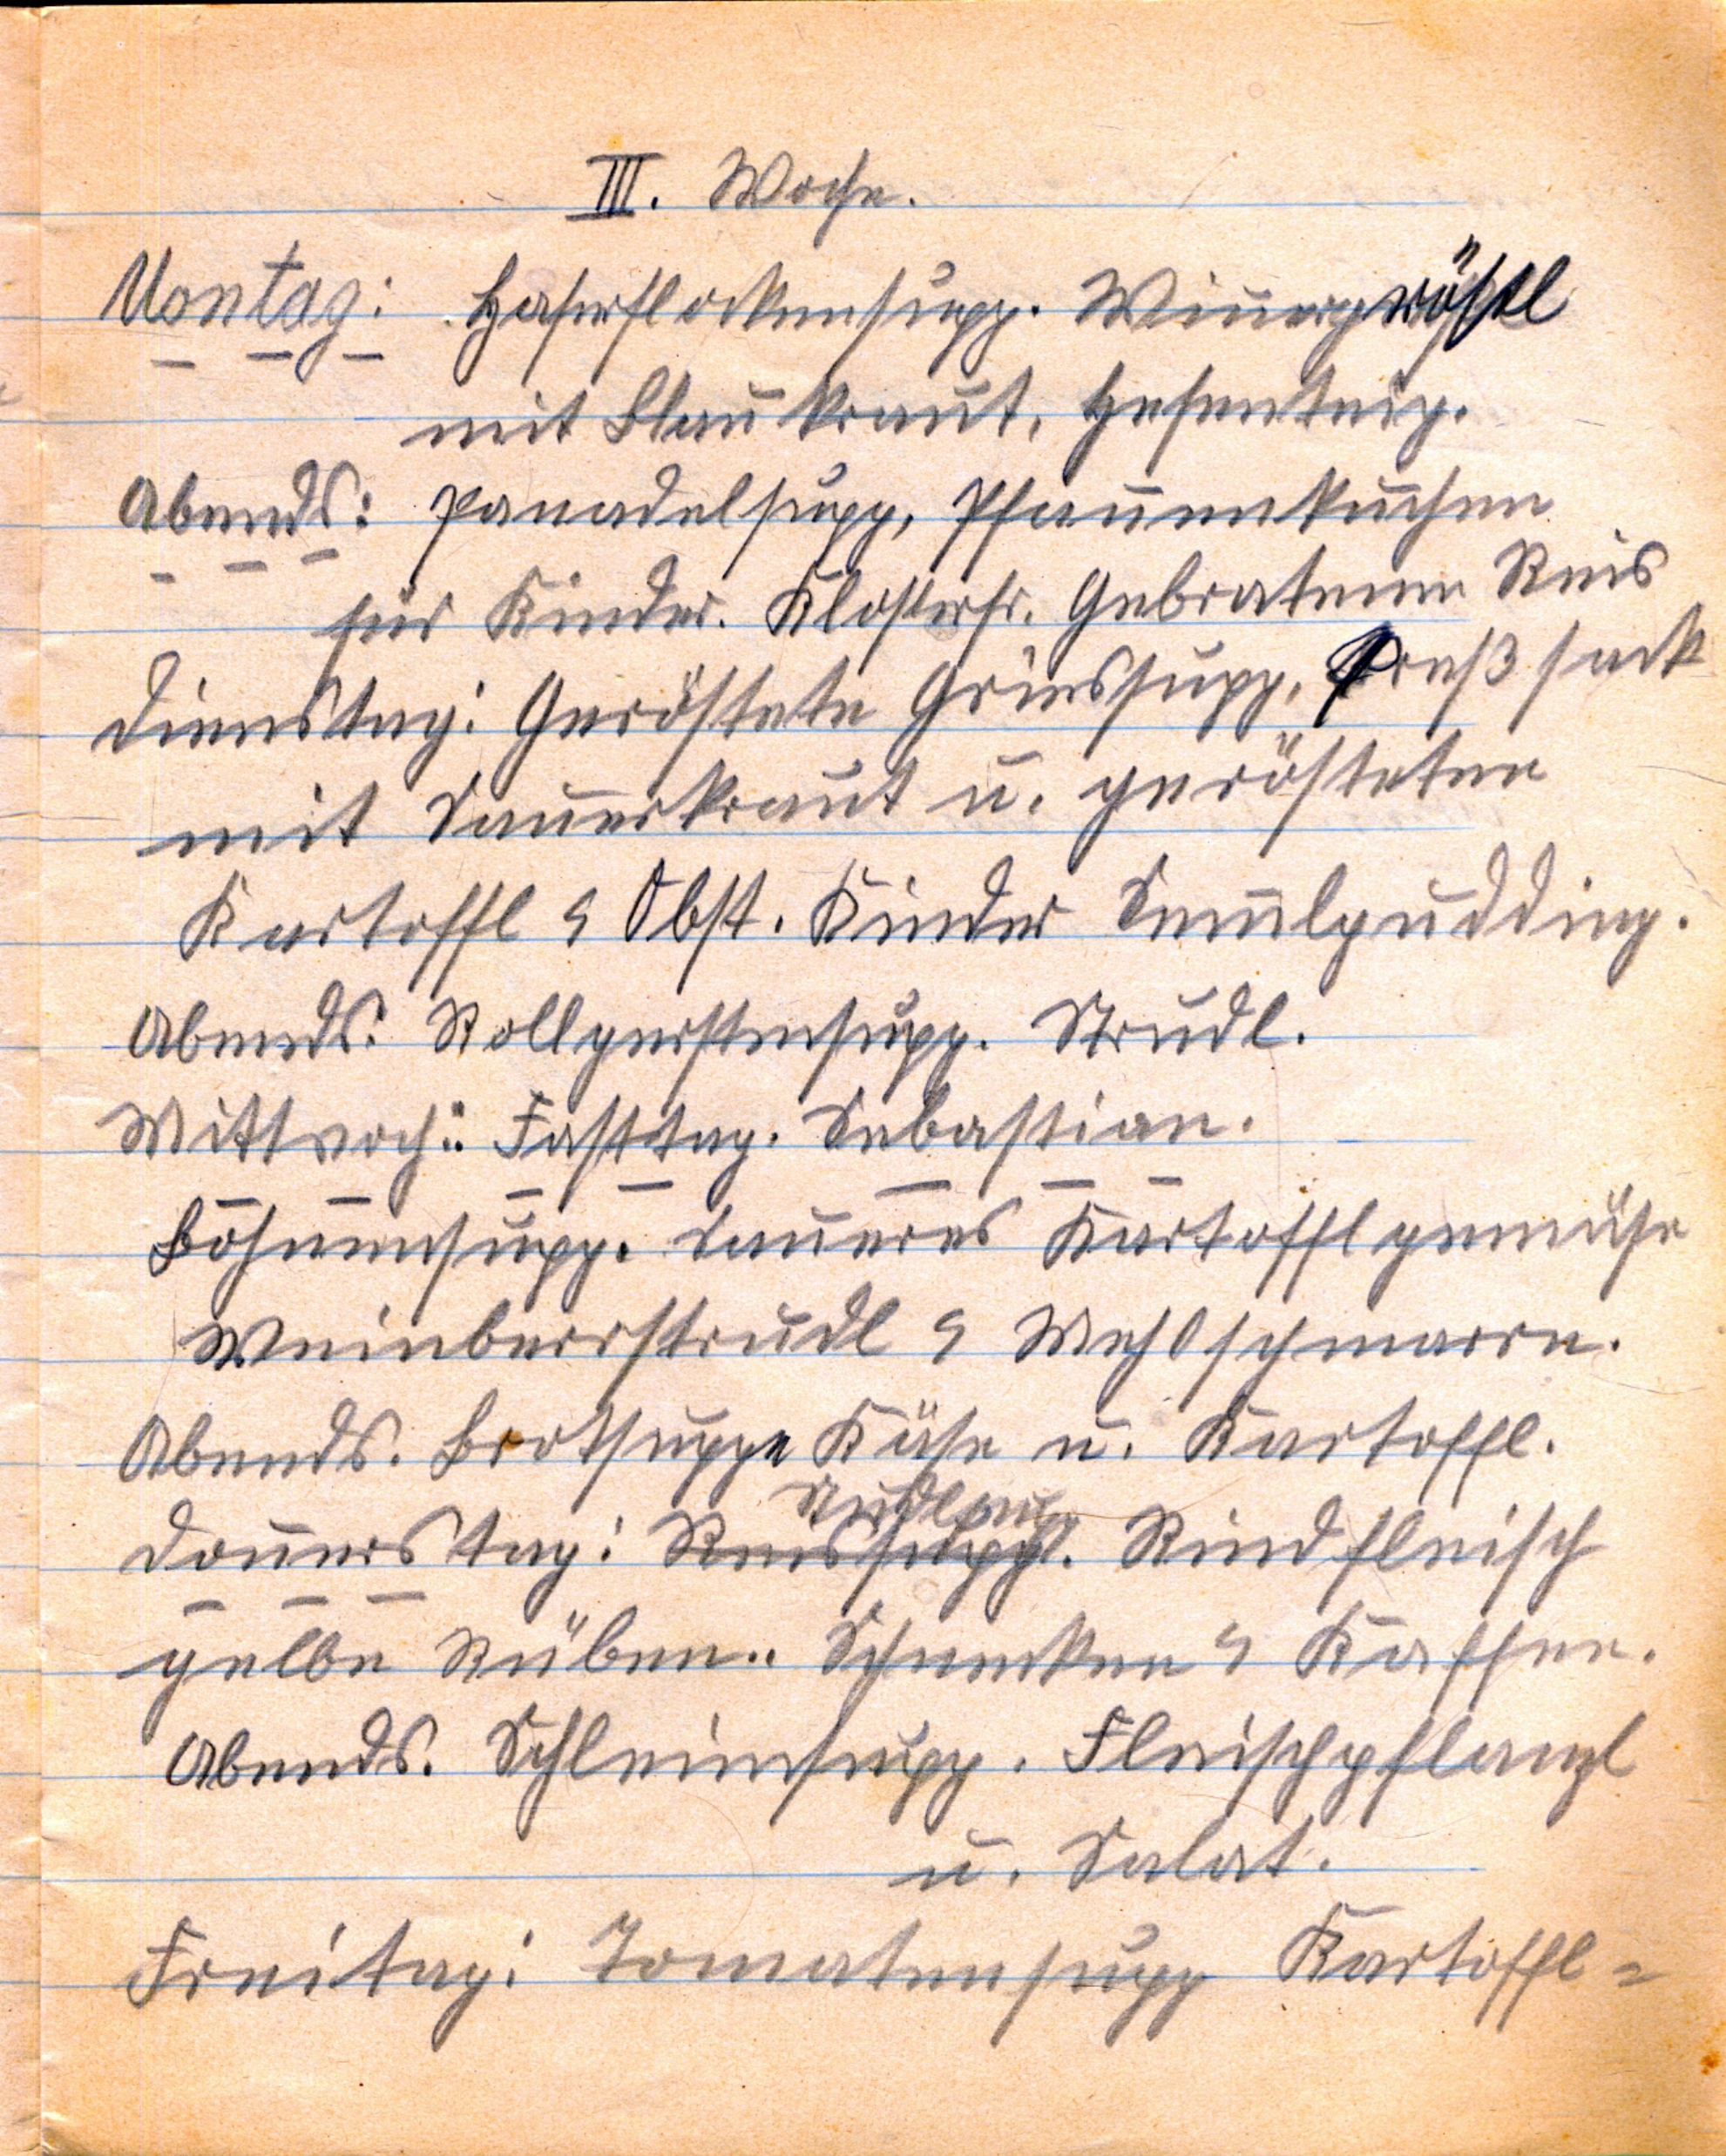 III. Woche.
Montag: Haferflockensupp. Wienergröstl
mit Blaukraut, Hefenteig.
Abends: Panadelsupp, Pfannenkuchen
für Kinder. Klosterfr. Gebratenen Reis
Dienstag: Geröstete Griessupp, Preßsack
mit Sauerkraut u. gerösteten
Kartoffl & Obst. Kinder Semmlpudding.
Abends: Rollgerstensupp. Strudl.
Mittwoch: Fasttag. Sebastian.
Bohnensupp. Saueres Kartofflgemüse
Weinberrstrudl & Mehlschmarrn.
Abends. Brotsuppe Käse u. Kartoffl.
Nudlsup
Donnerstag: Reissupp. Rindfleisch
gelbe Rüben.. Schnecken & Kaffee.
Abends. Schleimsupp. Fleischpflanzl
u. Salat.
Freitag: Tomatensupp Kartoffl=